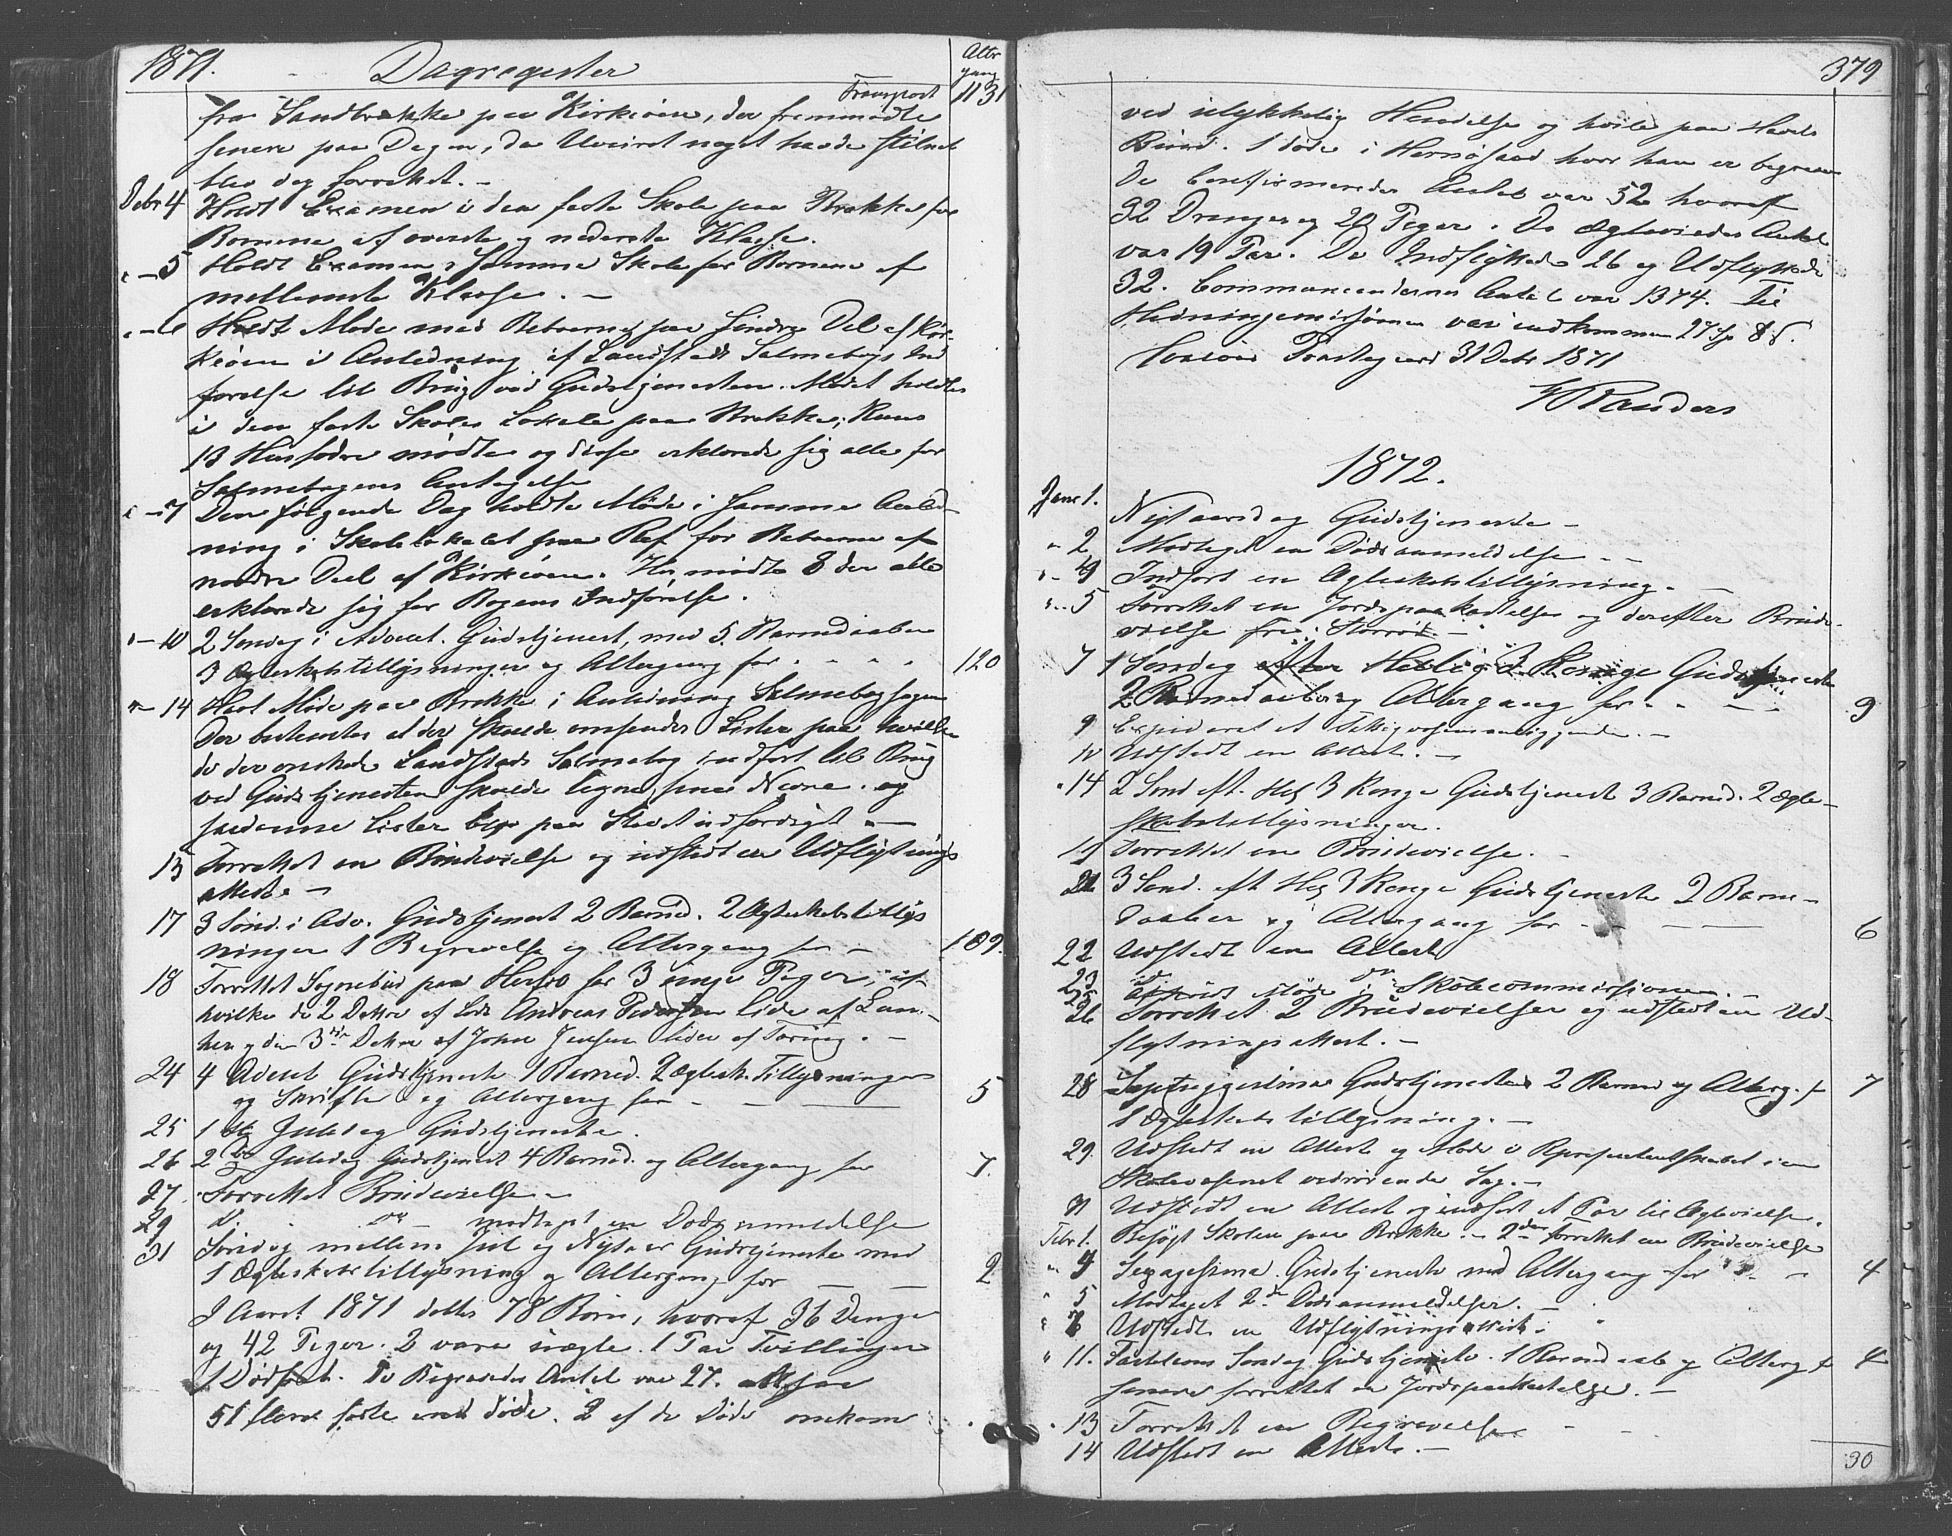 1871. Dagregister
Altr
gang
Transport 1131
fra Sandbrekke paa Kirkeøen, der fremmødte
senere paa Dagen, da Uveiret noget havde stilnet
blev dog forrettet. –
Debr 4 Holdt Examen i den faste Skole paa Brekke for
Børnene af øverste og nederste Klasse.
" – 5 Holdt Examen i samme Skole for Børnene af
mellemste Klasse. –
" – 6 Holdt Møde med Beboerne paa søndre Del af Kir-
keøen i Anledning af Landstads Salmebogs Ind
førelse til Brug ved Gudstjenesten. Mødet holdtes
i den faste Skoles Lokale paa Brekke; Kuns
13 Husfædre mødte og disse erklærede sig alle for
Salmebogens Antagelse
" – 7 Den følgende Dag holdte Møde i samme Anled-
ning i Skolelokalet paa Røf for Beboerne af
nordre Deel af Kirkeøen. Her mødte 8 der alle
erklærede sig for Bogens Indførelse.
" – 10 2 Søndag i Advent. Gudstjenest, med 5 Barnedaabe
3 Ægteskabstillysninger og Altergang for - - - - 120
" – 14 Havt Møde paa Brekke i Anledning Salmebogsagen
Der bestemtes at der skulde omsendes Lister paa hvilke
de der ønskede Landstads Salmebog indført til Brug
ved Gudstjenesten skulde tegne sine Navne. og
saadanne Lister blev paa Stedet udfærdiget –
15 Forrettet en Brudevielse og udstedt en Udflytnings
attest –
17 3 Sønd. i Adv. Gudstjenest 2 Barned. 2 Ægteskabstillys
ninger 1 Begravelse og Altergang for – 109.
18 Forrettet Sognebud paa Herfø for 3 unge Piger; af
hvilke de 2 Døtre af Lods Andreas Pedersen Lide af
og den 3die Datter af John Jensen lider af Tæring. –
24 4 Advent Gudstjeneste 1 Barned. 2 Ægtesk. Tillysninger
og Skrifte og Altergang for – – 5
25 1 Juledag Gudstjeneste.
26 2 Juledag Gudstjenest 4 Barned. og Altergang for 7.
27 Forrettet Brudevielse –
29 d. do – modtaget en Dødsanmeldelse
31 Søndag mellem Jul og Nytaar Gudstjeneste med
1 Ægteskabstillysning og Altergang for – – 2
I Aaret 1871 døbtes 78 Børn, hvoraf 36 Drenge
og 42 Piger. 3 vare uægte. 1 Par Tvillinger
1 Dødfødt. De Begravedes Antal var 27. Altsaa
51 flere fødte end døde. 2 af de Døde omkom
379
ved ulykkelig Hendelse og hvile paa Havets
Bund. 1 døde i Hernøsand hvor han er begraven
De Confirmeredes Antal var 52 hvoraf
32 Drenge og 20 Piger. De Ægteviedes Antal
var 19 Par. De Indflyttede 26 og Udflyttede
32. Communicendernes Antal var 1374. Til
Hedningemissionen var indkommen 27 Sp 8 s.
Hvaløer Præstegaard 31 Debr 1871
Randers
1872.
Janr 1. Nytaarsdag Gudstjeneste –
" 2 Modtaget en Dødsanmeldelse – –
" 4 Indført en Ægteskabstillysning. –
" 5 Forrettet en Jordspaakastelse og derefter Brude-
vielse
7 1 Søndag efter Hellig 3 Konge Gudstjeneste
2 Barnedaab og Altergang for – – – 9
9 Expederet et Fattigvæsensanliggende. –
10 Udstedt en Attest. –
" 14 2 Sønd eft. Hlg 3 Konge Gudstjenest 3 Barned. 2 Ægte-
skabstillysninger.
19 Forrettet en Brudevielse. –
21 3 Sønd. eft Hlg 3 Konge Gudstjeneste 2 Barne-
daaber og Altergang for – – – 6
22 Udstedt en Attest
23 d. do
25 Afholdt Møde Skolecommissionen. –
26 Forrettet 2 Brudevielser og udstedt en Ud-
flytningsattest. –
28 Septuagesima Gudstjeneste 2 Barned og Alterg. f 7
1 Ægteskabstillysning. –
29. Udstedt en Attest og Møde i Repræsentantskabet i en
Skolevæsenet vedrørende Sag. –
31 Udstedt en Attest og indført et Par til Ægtevielse.
Febr 1. Besøgt Skolen paa Brekke. – 2den Forrettet en Brudevielse
" 4 Sexagesima Gudstjeneste med Altergang for – – 4
" 5 Modtaget 2de Dødsanmeldelser. –
" 7 Udstedt en Udflytningsattest.
" 11. Fastelavns Søndag Gudstjeneste. 1 Barnedaab og Alterg f 4
senere forrettet en Jordspaakastelse. –
" 13 Forrettet en Begravelse –
14 Udstedt en Attest. –
30